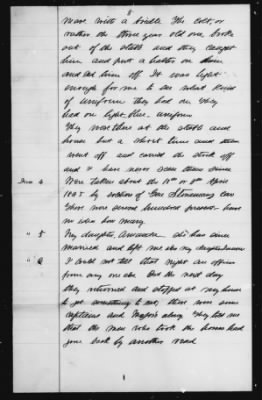 8
mare with a bridle The Colt, or
rather the three year old one, broke
out of the stable and they caught
him and put a halter on him
and led him off. It was light
enough for me to see what kind
of uniform they had on. They
had on light blue uniform
They were there at the stable and
house but a short time and then
went off and carried the stock off
and I have never seen them since
Item 4 Were taken about the 10th or 8th April
1865 by soldiers of Gen Stonemans Com
There were several hundred present - have
no idea how many.
" 5 My daughter, Amanda who has since
married and left me also my daughter
" 6 I could not tell that night an officer
from any one else But the next day
they returned and stopped at my house
to get something to eat, there were some
captains and Majors along They told me
that the men who took the horses had
gone back by another road